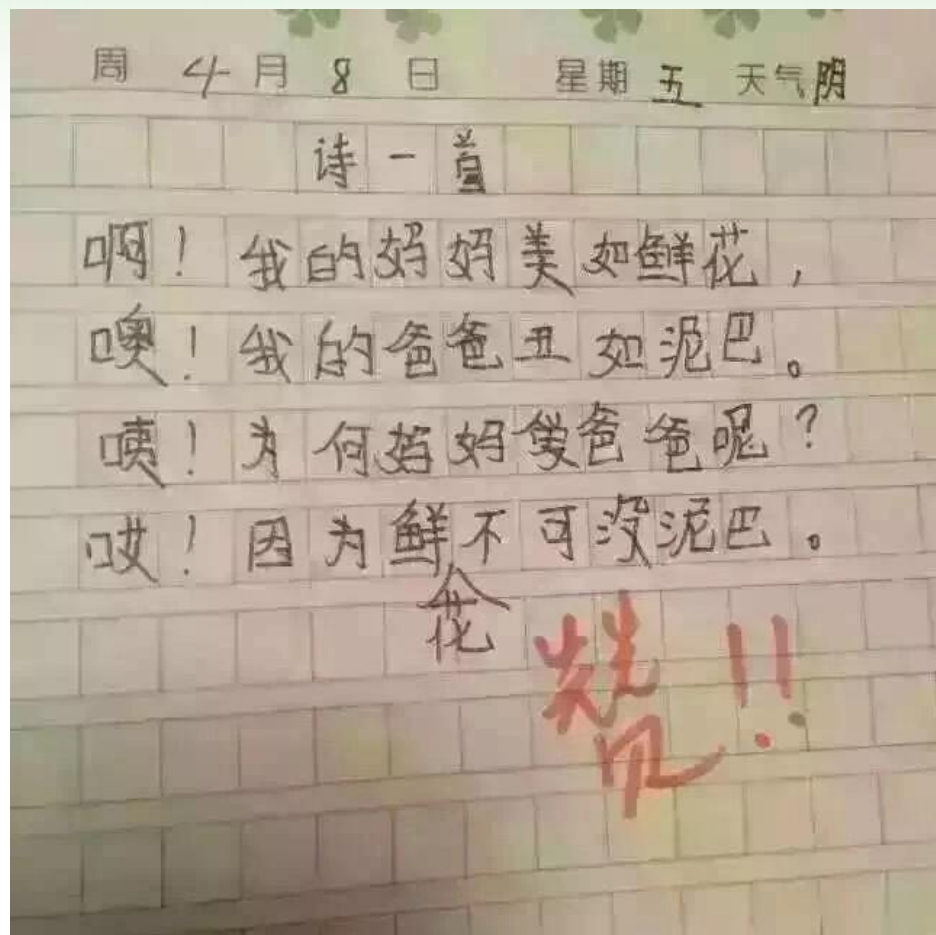 周 4月8日 星期五 天气阴
诗一首
啊！我的妈妈美如鲜花，
噢！我的爸爸丑如泥巴。
咦！为何妈妈爱爸爸呢？
哎！因为鲜花不可没泥巴。
赞!!